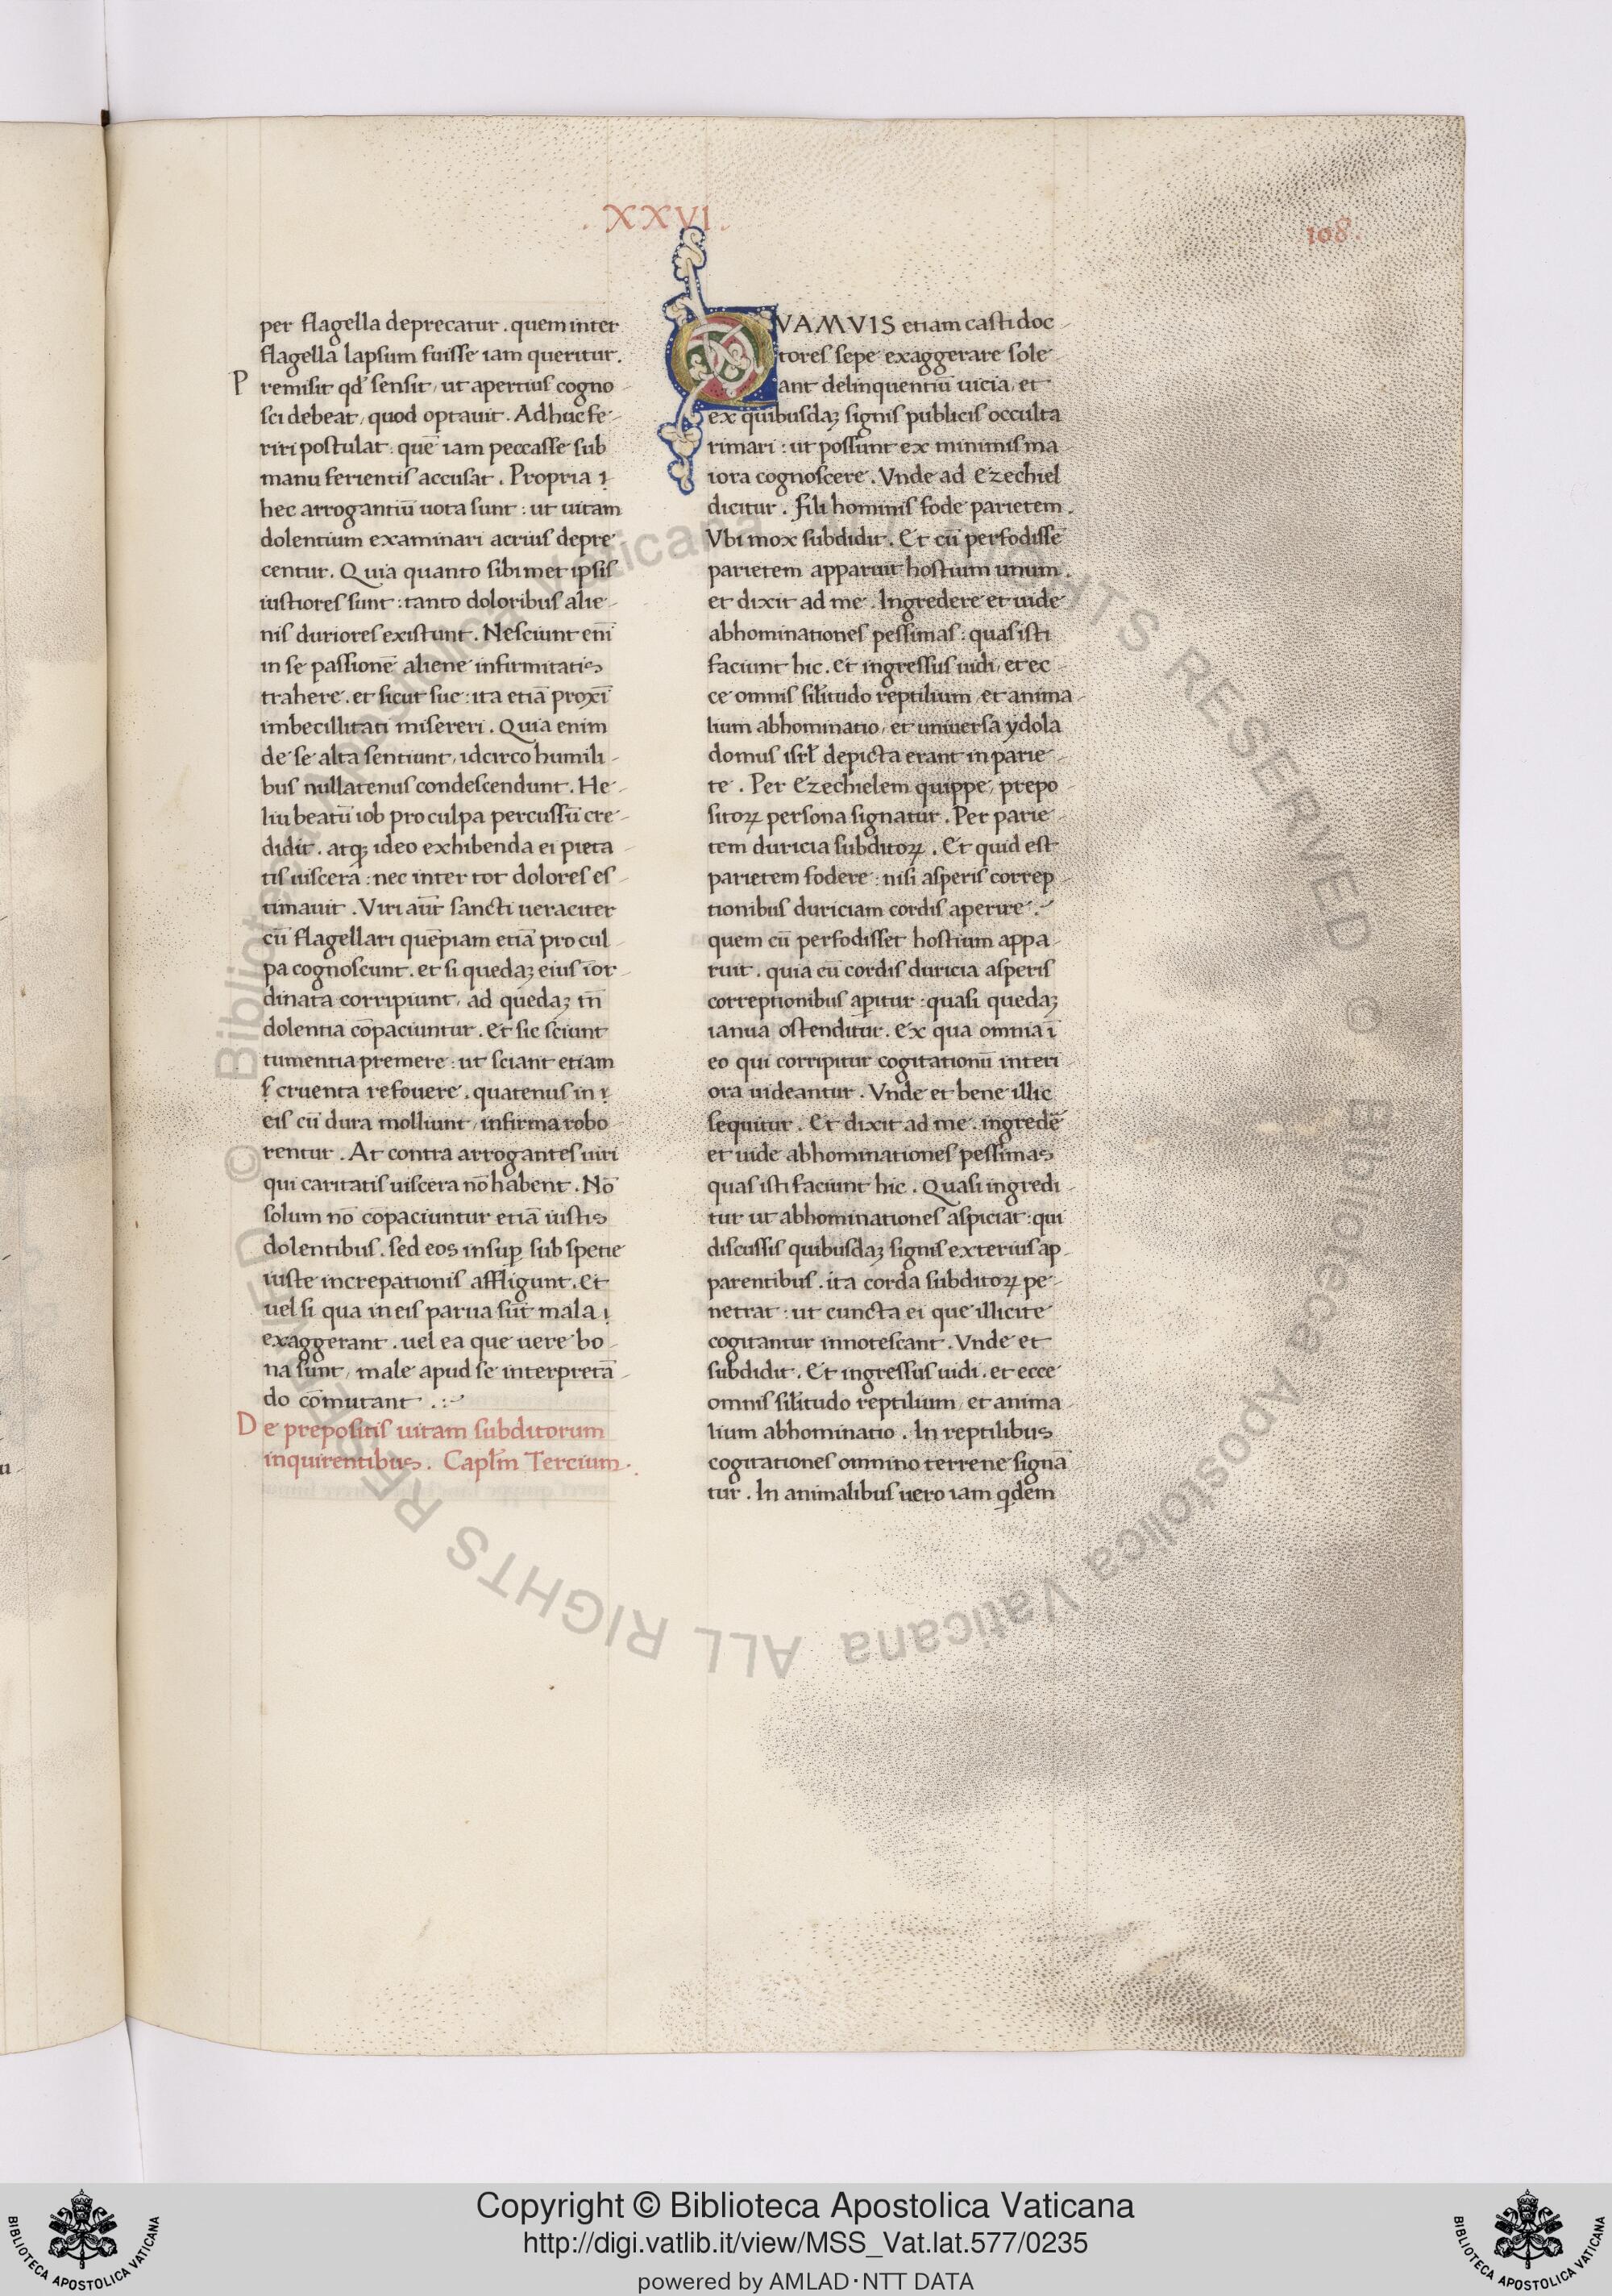 . XXVI .
108.
per flagella deprecatur . quem inter
flagella lapsum fuisse iam queritur.
P remisit qd̄ sensit, ut apertius cogno-
sci debeat, quod optauit. Adhuc fe-
riri postulat: quē iam peccasse sub
manu ferientis accusat. Propria ī
hec arrogantiū uota sunt: ut uitam
dolentium examinari acrius depre-
centur. Quia quanto sibimet ipsis
iustiores sunt: tanto doloribus alie-
nis duriores existunt. Nesciunt eni᷑
in se passionē aliene infirmitatis
trahere. et sicut sue: ita etiā proxī
imbecillitati misereri. Quia enim
de se alta sentiunt, idcirco humili-
bus nullatenus condescendunt. He-
liu beatū iob pro culpa percussū cre-
didit. atq; ideo exhibenda ei pieta-
tis uiscera: nec inter tot dolores es-
timauit. Viri aūt sancti ueraciter
cū flagellari quēpiam etiā pro cul-
pa cognoscunt. et si quedaꝫ eius īor-
dinata corripiunt, ad quedaꝫ tn̄
dolentia cōpaciuntur. et sic sciunt
tumentia premere: ut sciant etiam
cruenta refouere. quatenus in
eis cū dura molliunt, infirma robo-
rentur. At contra arrogantes uiri
qui caritatis uiscera nō habent. Nō
solum nō copaciuntur etiā iustis
dolentibus. sed eos insuꝑ sub spetie
iuste increpationis affligunt. et
uel si qua in eis parua sūt mala
exaggerant. uel ea que uere bo-
na sunt, male apud se interpretā-
do cōmutant .:~
De prepositis uitam subditorum
inquirentibus. Capl̄m Tercium.
QVAMVIS etiam casti doc-
tores sepe exaggerare sole-
ant delinquentiū uicia, et
ex quibusdaꝫ signis publicis occulta
rimari: ut possunt ex minimis ma-
iora cognoscere. Vnde ad ezechiel
dicitur. fili hominis fode parietem.
Vbi mox subdidit. Et cū perfodissē
parietem apparuit hostium unum.
et dixit ad me. Ingredere et uide
abhominationes pessimas: quas isti
faciunt hic. et ingressus uidi, et ec-
ce omnis sil̄itudo reptilium, et anima-
lium abhominatio, et uniuersa ydola
domus isrl̄ depicta erant in parie-
te. Per ezechielem quippe, prepo-
sitoꝝ persona signatur. Per parie-
tem duricia subditoꝝ. Et quid est
parietem fodere: nisi asperis correp-
tionibus duriciam cordis aperire.
quem cū perfodisset hostium appa-
ruit. quia cū cordis duricia asperis
correptionibus aꝑitur: quasi quedaꝫ
ianua ostenditur. ex qua omnia ī
eo qui corripitur cogitationū interi-
ora uideantur. Vnde et bene illic
sequitur. Et dixit ad me. ingredē
et uide abhominationes pessimas
quas isti faciunt hic. Quasi ingredi-
tur ut abhominationes aspiciat: qui
discussis quibusdaꝫ signis exterius ap-
parentibus. ita corda subditoꝝ pe-
netrat: ut cuncta ei que illicite
cogitantur innotescant. Vnde et
subdidit. Et ingressus uidi. et ecce
omnis sil̄itudo reptilium, et anima-
lium abhominatio. In reptilibus
cogitationes omnino terrene signā-
tur. In animalibus uero iam qdem
© Biblioteca Apostolica Vaticana ALL RIGHTS RESERVED © Biblioteca Apostolica Vaticana ALL RIGHTS RESERVED
Copyright © Biblioteca Apostolica Vaticana
http://digi.vatlib.it/view/MSS_Vat.lat.577/0235
powered by AMLAD·NTT DATA
BIBLIOTECA APOSTOLICA VATICANA
BIBLIOTECA APOSTOLICA VATICANA